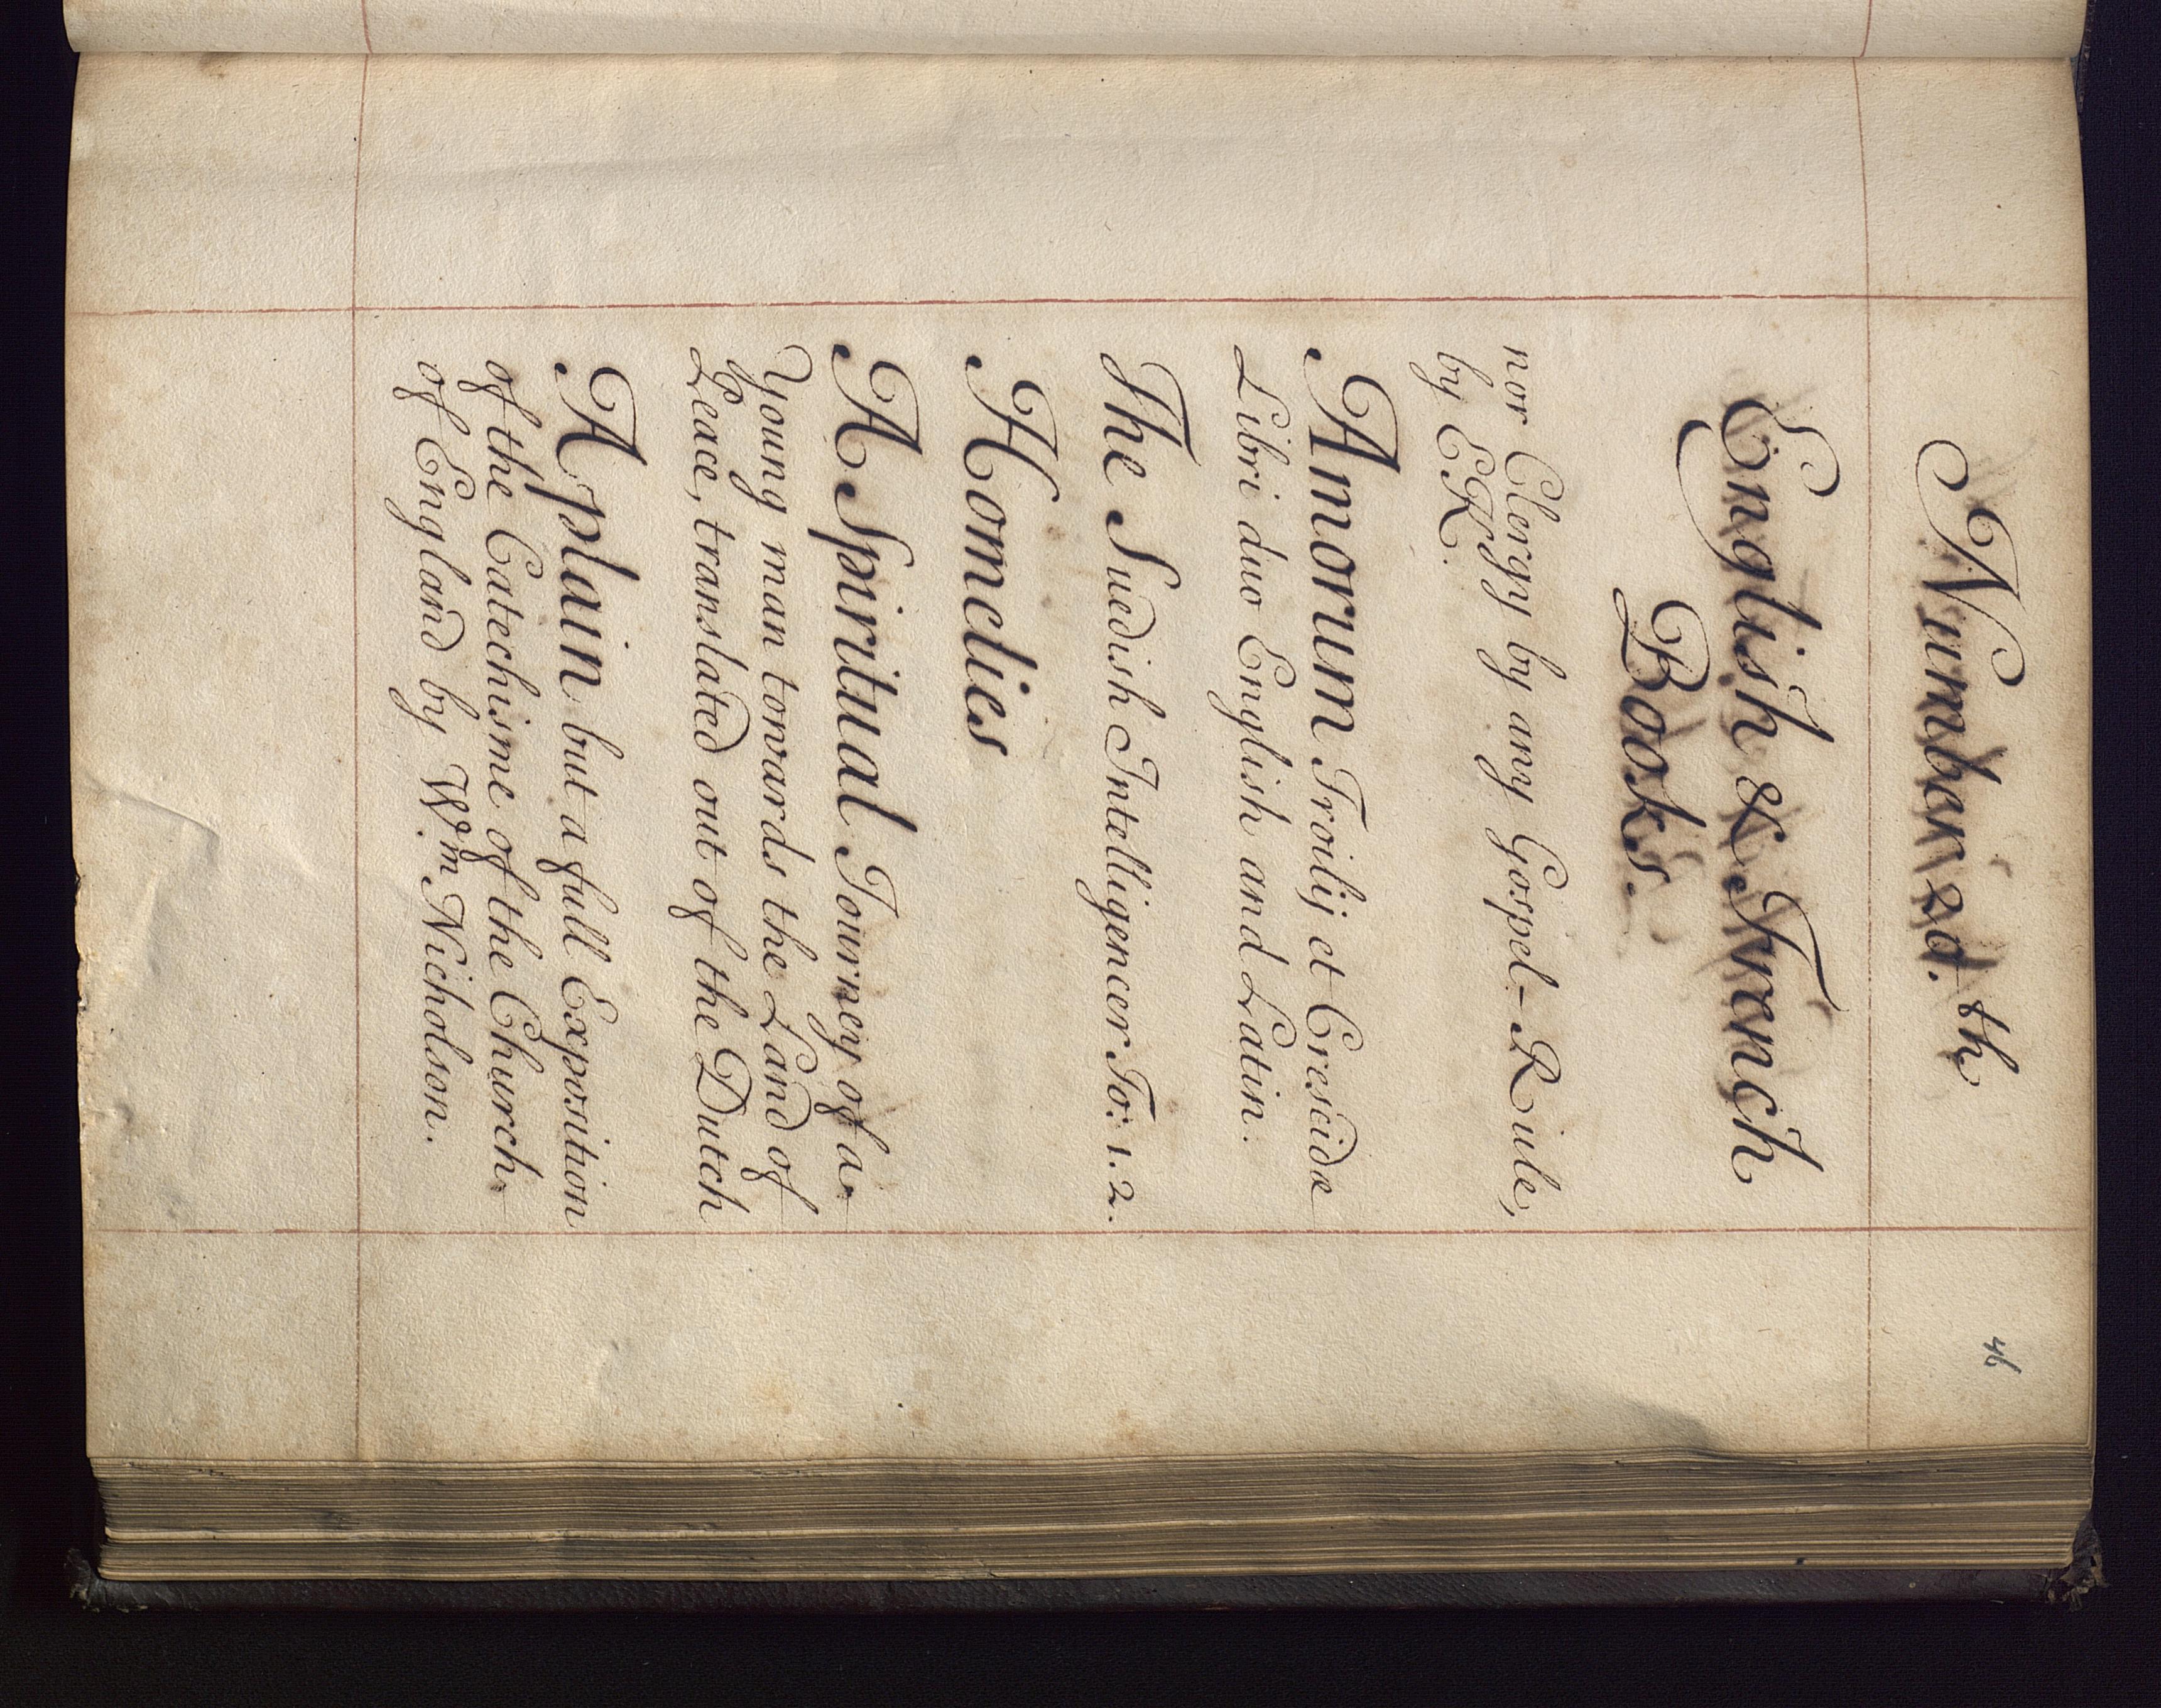 46
Number 20.th
English & French
Books.
nor Clergy by any Gospel-Rule,
by E K.
Amorum Troilij et Crescidæ
Libri duo English and Latin.
The Suedish Intelligencer To: 1. 2.
Homelies
A Spiritual Journey of a
Young man towards the Land of
Peace, translated out of the Dutch
A plain but a full Exposition
of the Catechisme of the Church
of England by Wm. Nicholson.